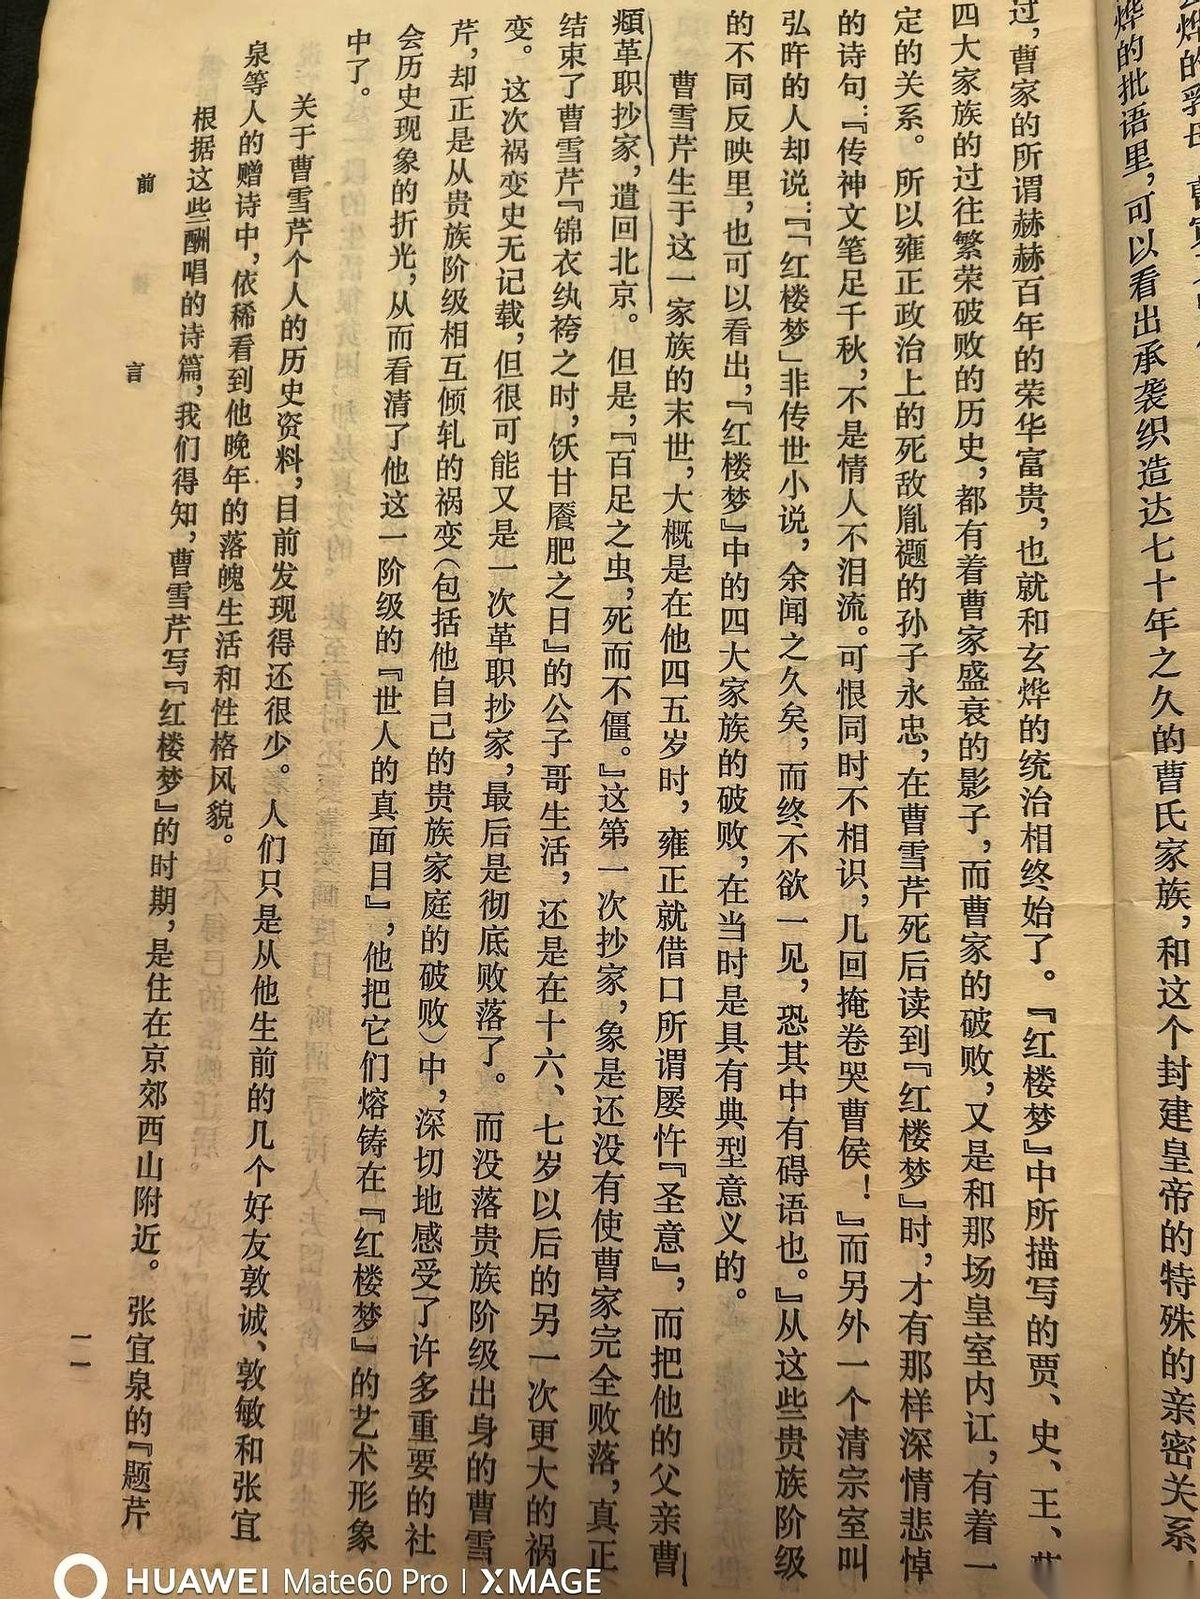 烨的乳母
烨的批语里，可以看出承袭织造达七十年之久的曹氏家族，和这个封建皇帝的特殊的亲密关系
过，曹家的所谓赫赫百年的荣华富贵，也就和玄烨的统治相终始了。『红楼梦』中所描写的贾、史、王、
四大家族的过往繁荣破败的历史，都有着曹家盛衰的影子，而曹家的破败，又是和那场皇室内讧，有着一
定的关系。所以雍正政治上的死敌胤禵的孙子永忠，在曹雪芹死后读到『红楼梦』时，才有那样深情悲悼
的诗句：『传神文笔足千秋，不是情人不泪流。可恨同时不相识，几回掩卷哭曹侯！』而另外一个清宗室叫
弘旿的人却说：『「红楼梦」非传世小说，余闻之久矣，而终不欲一见，恐其中有碍语也。』从这些贵族阶级
的不同反映里，也可以看出，『红楼梦』中的四大家族的破败，在当时是具有典型意义的。
曹雪芹生于这一家族的末世，大概是在他四五岁时，雍正就借口所谓屡忤『圣意』，而把他的父亲曹
頫革职抄家，遣回北京。但是，『百足之虫，死而不僵。』这第一次抄家，象是还没有使曹家完全败落，真正
结束了曹雪芹『锦衣纨袴之时，饫甘餍肥之日』的公子哥生活，还是在十六、七岁以后的另一次更大的祸
变。这次祸变史无记载，但很可能又是一次革职抄家，最后是彻底败落了。而没落贵族阶级出身的曹雪
芹，却正是从贵族阶级相互倾轧的祸变（包括他自己的贵族家庭的破败）中，深切地感受了许多重要的社
会历史现象的折光，从而看清了他这一阶级的『世人的真面目』，他把它们熔铸在『红楼梦』的艺术形象
中了。
关于曹雪芹个人的历史资料，目前发现得还很少。人们只是从他生前的几个好友敦诚、敦敏和张宜
泉等人的赠诗中，依稀看到他晚年的落魄生活和性格风貌。
根据这些酬唱的诗篇，我们得知，曹雪芹写『红楼梦』的时期，是住在京郊西山附近。张宜泉的『题芹
前言
一一
HUAWEI Mate60 Pro | XMAGE